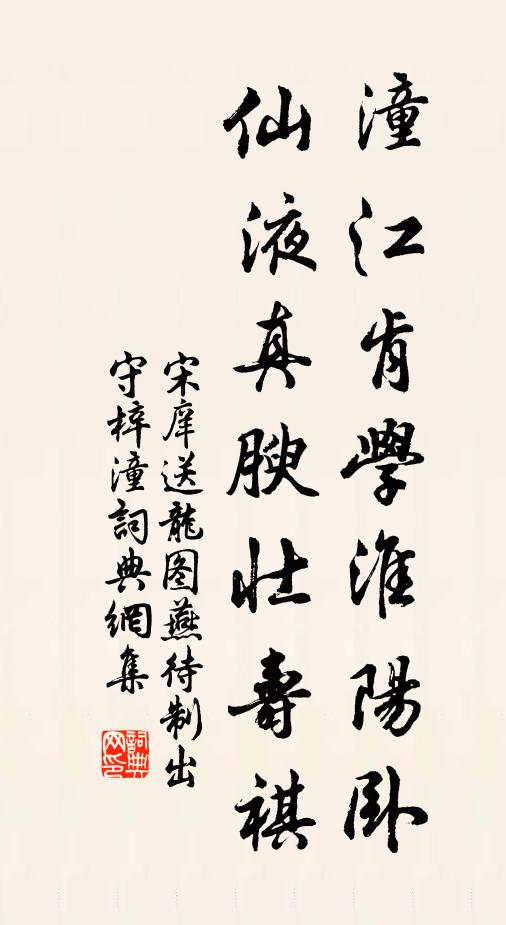 潼江肯學淮陽卧
仙液真腴壯壽祺
宋庠送龍图燕待制出
守梓潼詞典網集
詞典网印